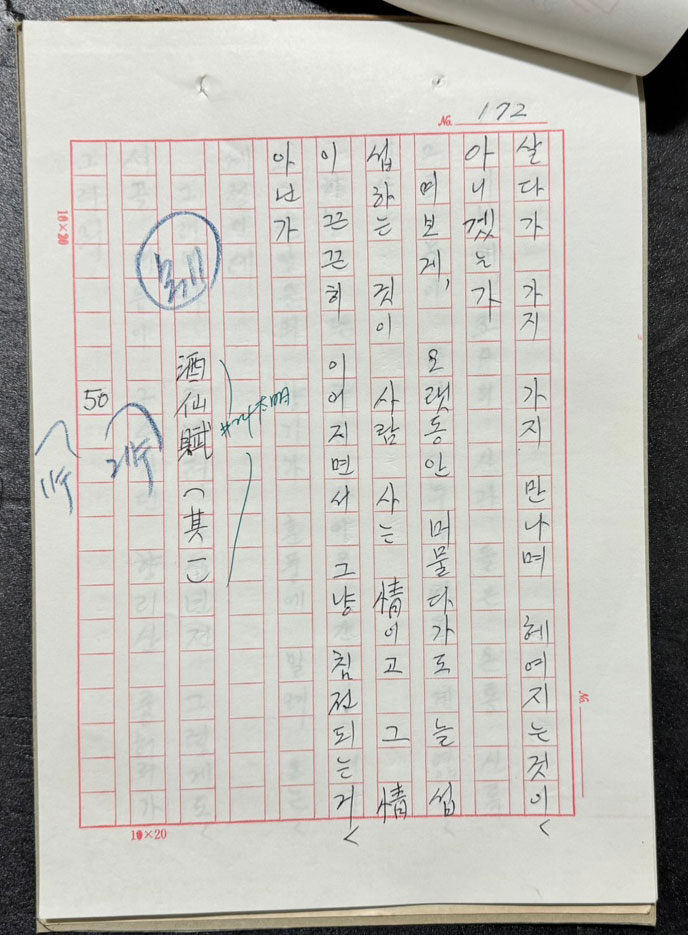 No. 172
살다가 가지 가지 만나며 헤여지는것이
아니겠는가
여보게, 오랫동안 머물다가도 늘 섭
섭하는 것이 사람 사는 情이고 그 情
이 끈끈히 이어지면서 그냥 침전되는거
아닌가
酒仙賦 (其一)
50
No.
10×20
10×20